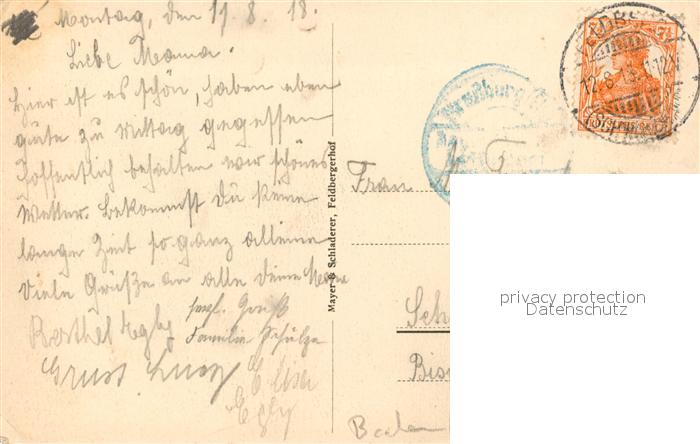 Montag, den 19.8.18.
Liebe Mama.
Hier ist es schön, haben eben
gute zu Mittag gegessen
hoffentlich behalten wir schönes
Wetter. Bekommst Du keine
lange Zeit so ganz alleine
Viele Grüße an alle deine
Berthel Egly
Gruß
Familie Schulze
Gruss
Elise
Egly
Mayer & Schladerer, Feldbergerhof
Frau
Sch
Bis
Baden
7½
FELDBERG
privacy protection
Datenschutz